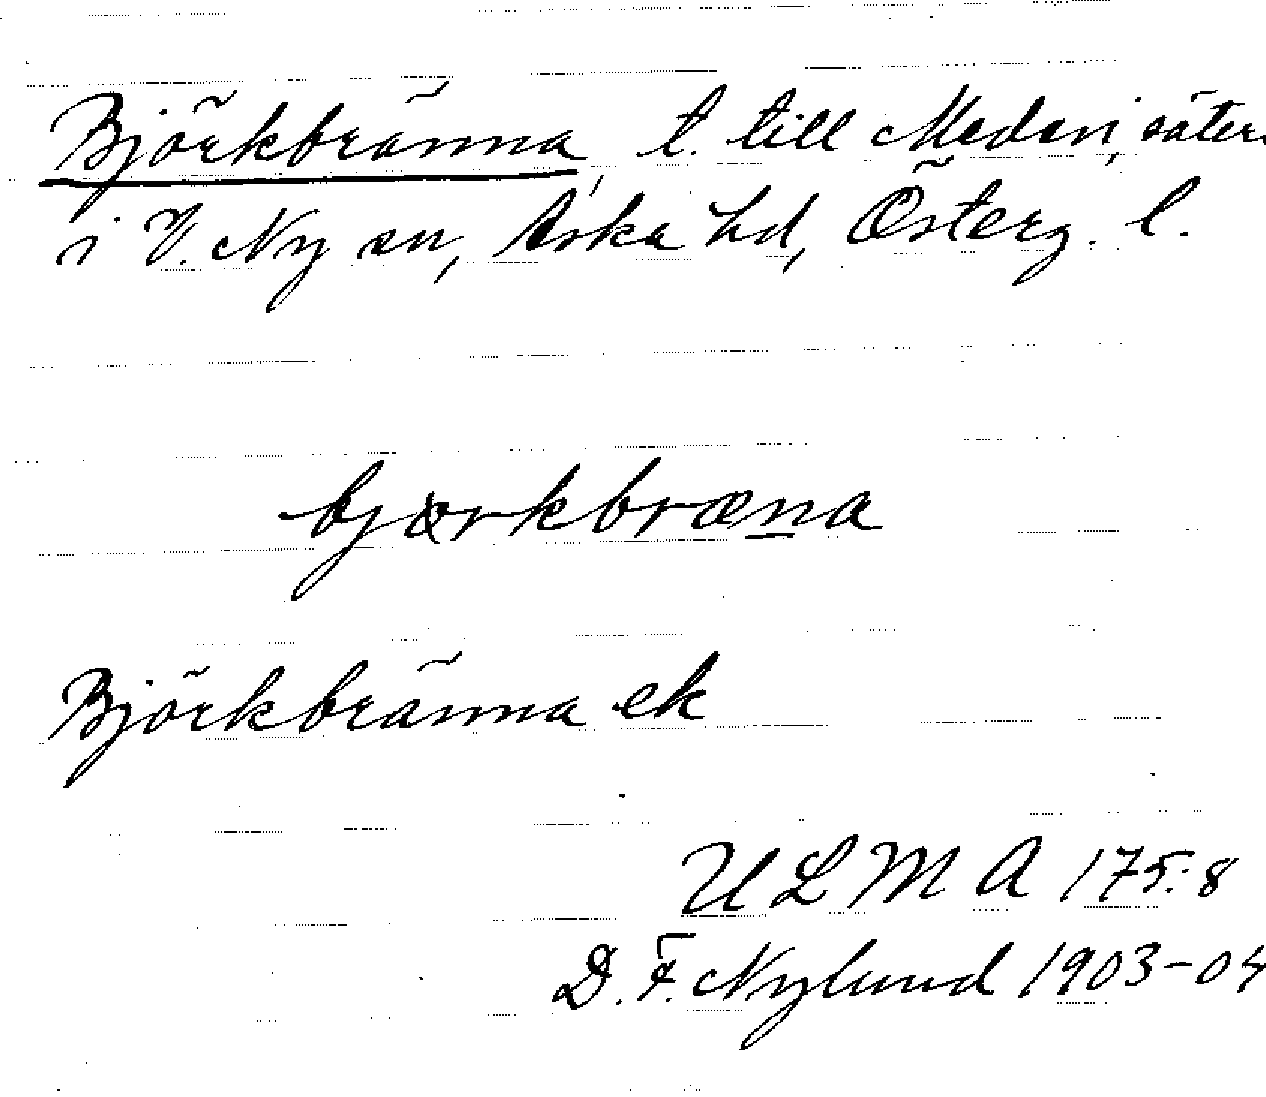 Björkbränna, t. till Medevi, säteri
i V. Ny sn, Aska hd, Österg. l.
bjørkbræna
Björkbränna ek
ULMA 175:8
D. F. Nylund 1903-04